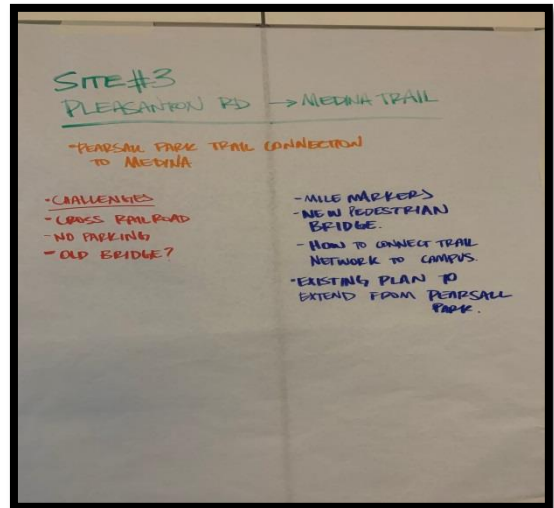 SITE #3
PLEASANTON RD → MEDINA TRAIL
-PEARSALL PARK TRAIL CONNECTION
TO MEDINA
-CHALLENGES
-CROSS RAILROAD
-NO PARKING
-OLD BRIDGE?
-MILE MARKERS
-NEW PEDESTRIAN
BRIDGE.
-HOW TO CONNECT TRAIL
NETWORK TO CAMPUS.
-EXISTING PLAN TO
EXTEND FROM PEARSALL
PARK.